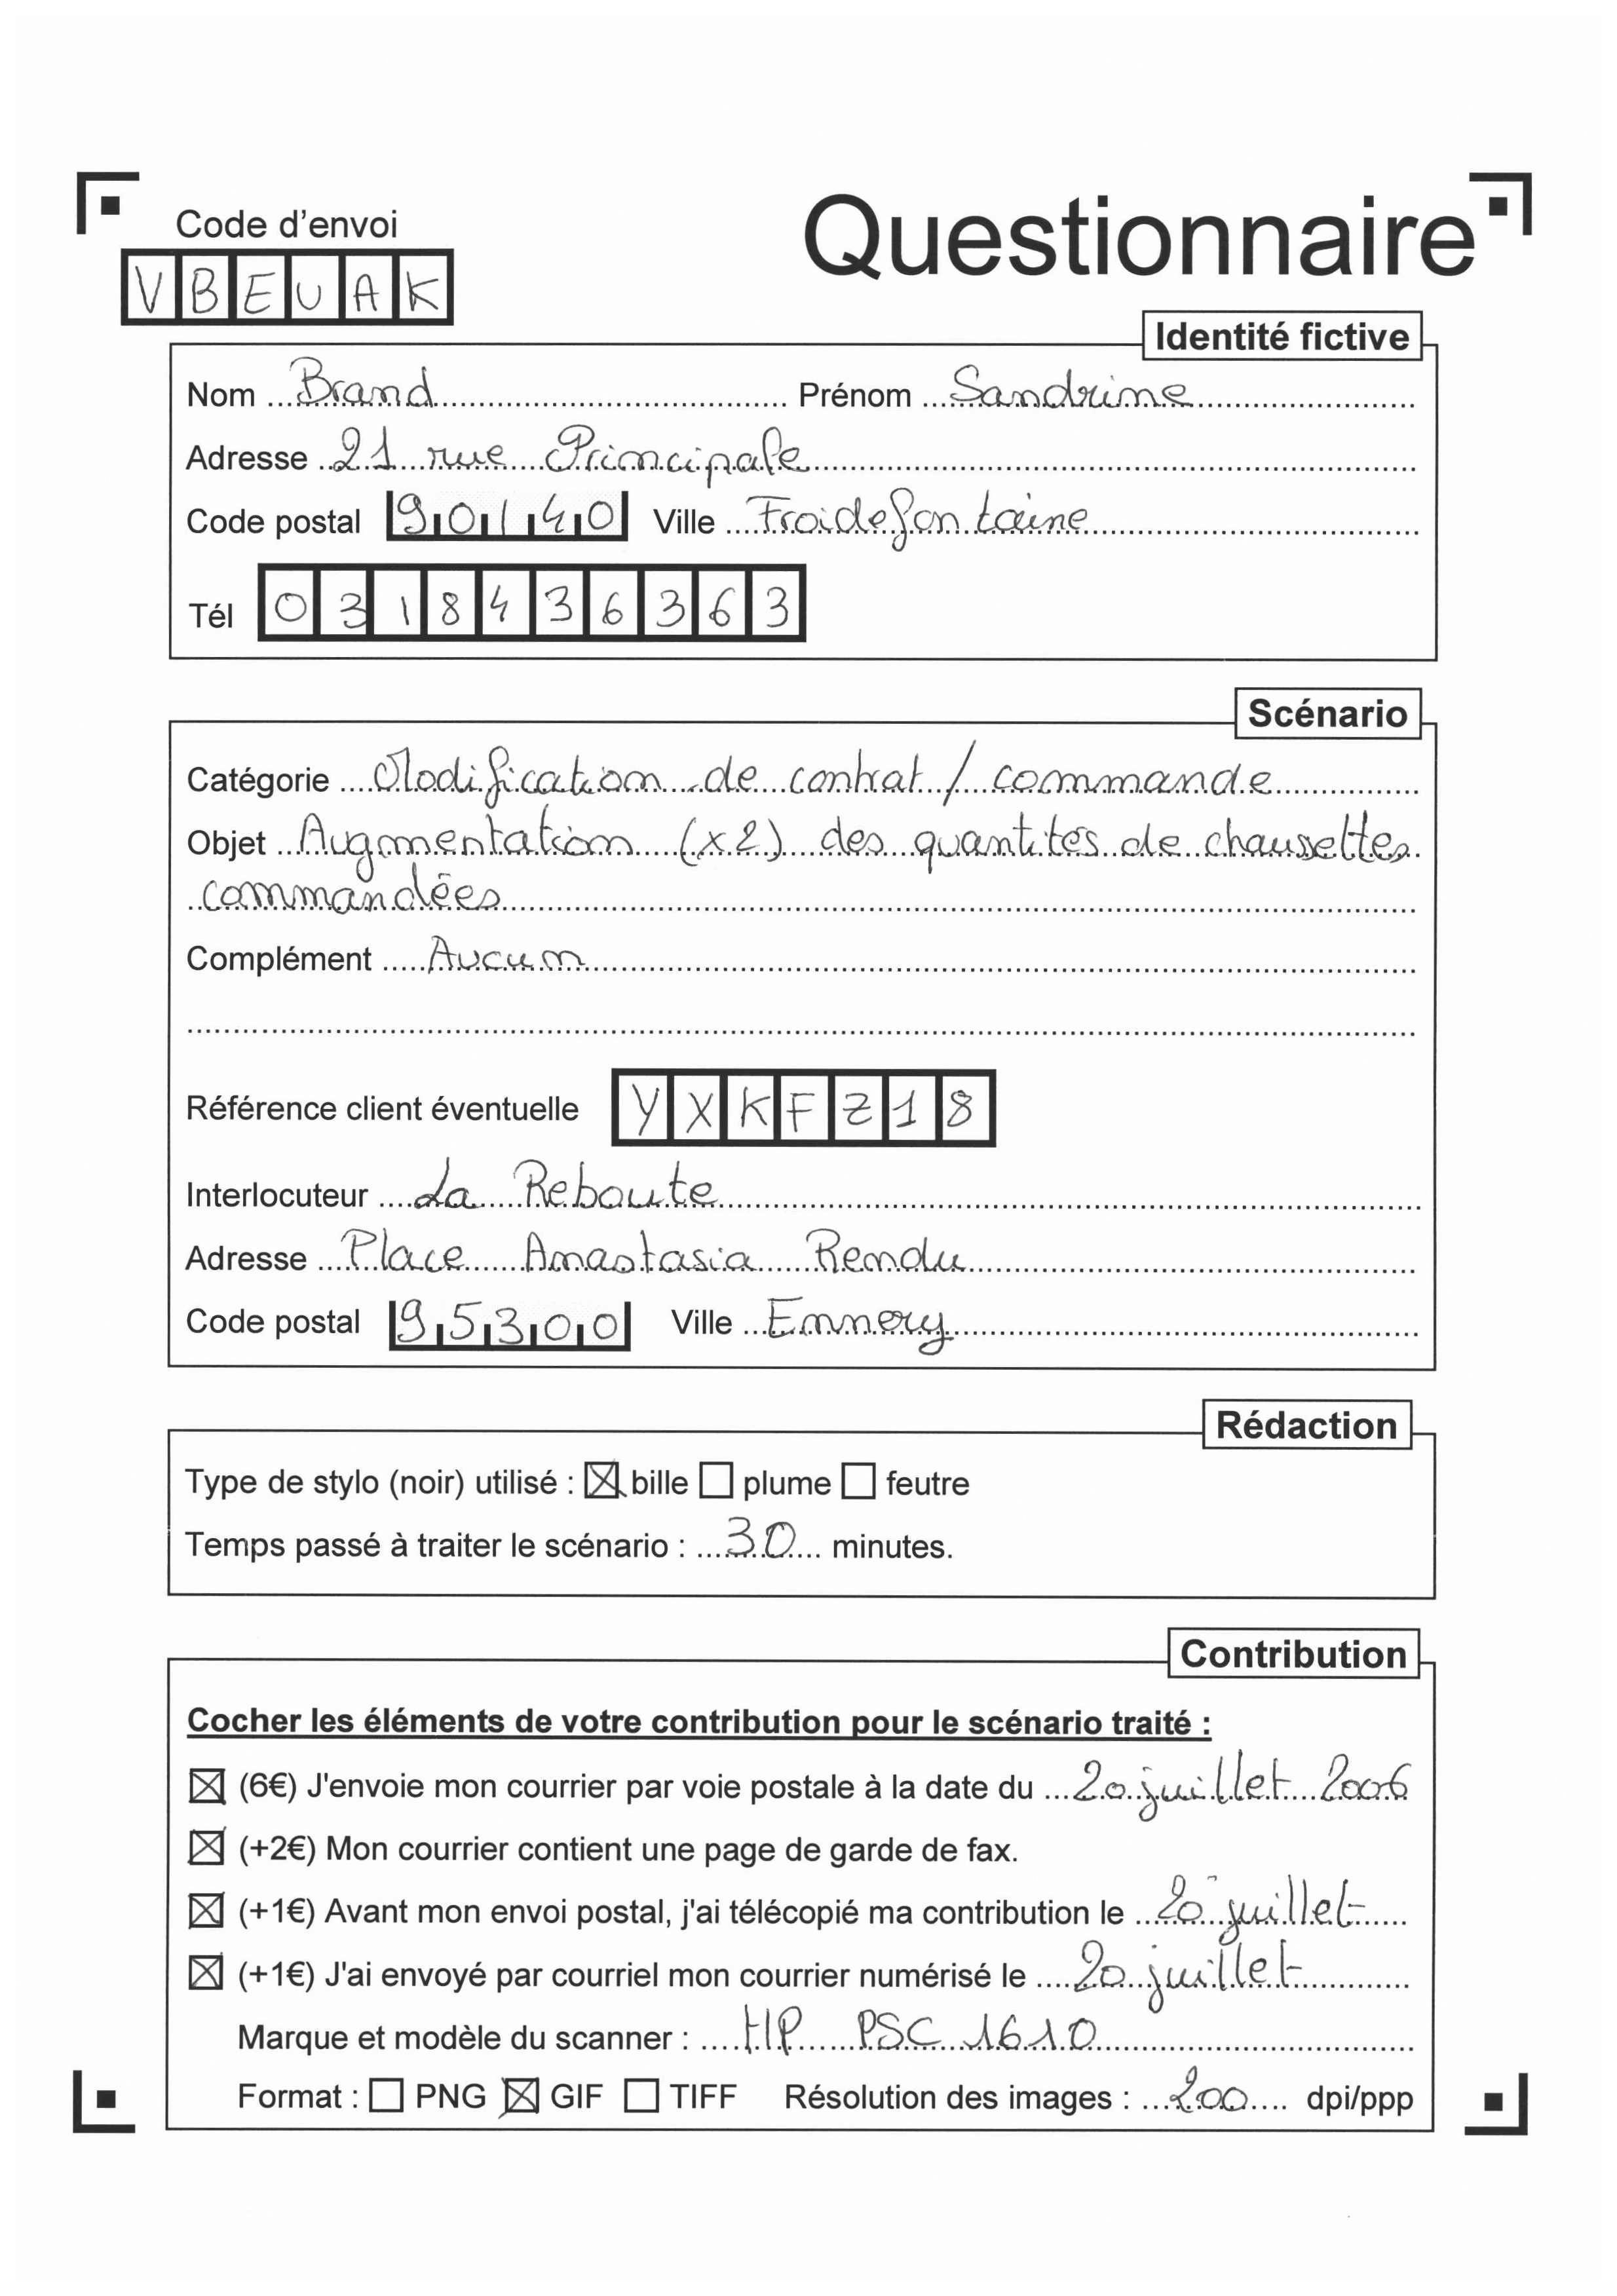 Code d'envoi
Questionnaire
VBEUAK
Identité fictive
Nom Brand Prénom Sandrine
Adresse 21 rue Principale
Code postal 90140 Ville Froidefontaine
Tél 0318436363
Scénario
Catégorie Modification de contrat / commande
Objet Augmentation (x2) des quantités de chaussettes
commandées
Complément Aucun
Référence client éventuelle YXKFZ18
Interlocuteur La Reboute
Adresse Place Anastasia Rendu
Code postal 95300 Ville Ennery
Rédaction
Type de stylo (noir) utilisé : ☒ bille ☐ plume ☐ feutre
Temps passé à traiter le scénario : 30 minutes.
Contribution
Cocher les éléments de votre contribution pour le scénario traité :
☒ (6€) J'envoie mon courrier par voie postale à la date du 20 juillet 2006
☒ (+2€) Mon courrier contient une page de garde de fax.
☒ (+1€) Avant mon envoi postal, j'ai télécopié ma contribution le 20 juillet
☒ (+1€) J'ai envoyé par courriel mon courrier numérisé le 20 juillet
Marque et modèle du scanner : HP PSC 1610
Format : ☐ PNG ☒ GIF ☐ TIFF Résolution des images : 200 dpi/ppp